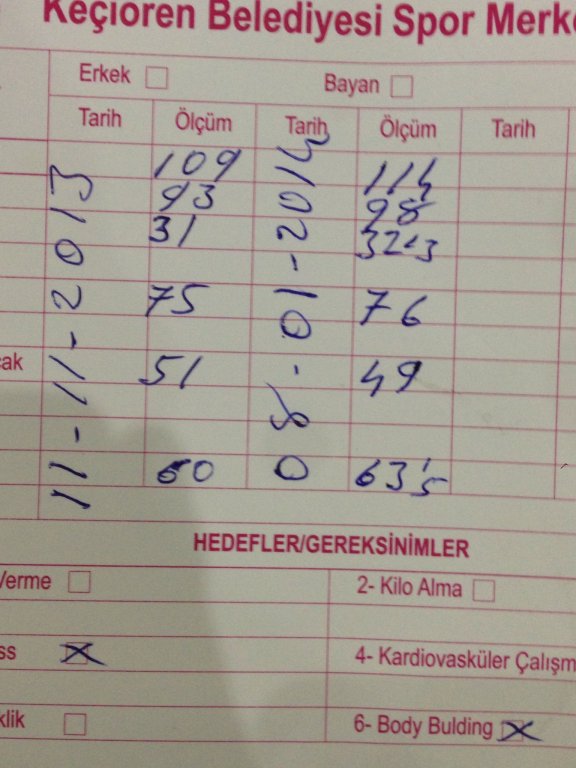 Keçiören Belediyesi Spor Merk
Erkek Bayan
Tarih Ölçüm Tarih Ölçüm Tarih
11-11-2013
08-01-2013
109 114
93 98
31
75 76
51 49
60 63,5
cak
HEDEFLER/GEREKSİNİMLER
Verme 2- Kilo Alma
ss 4- Kardiovasküler Çalışm
klik 6- Body Bulding